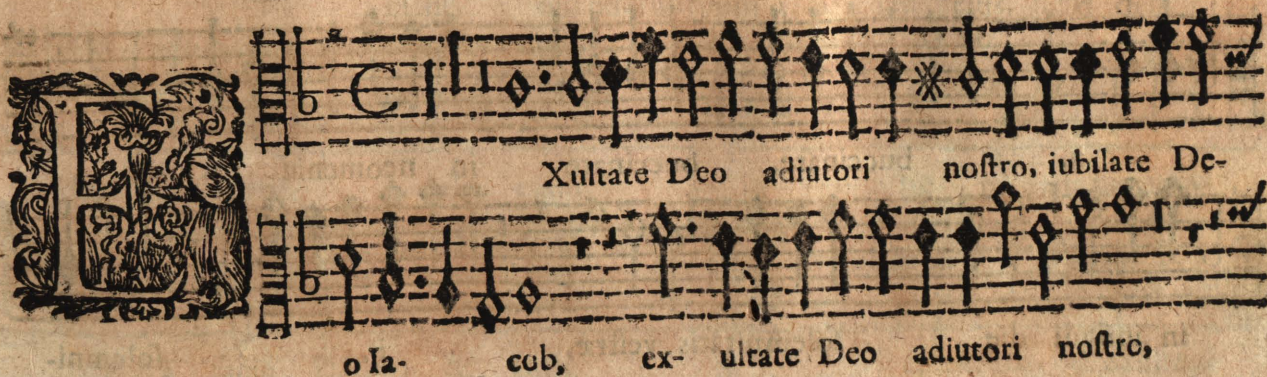 EXultate Deo adiutori noſtro, iubilate De-
o Ia- cob, ex- ultate Deo adiutori noſtro,